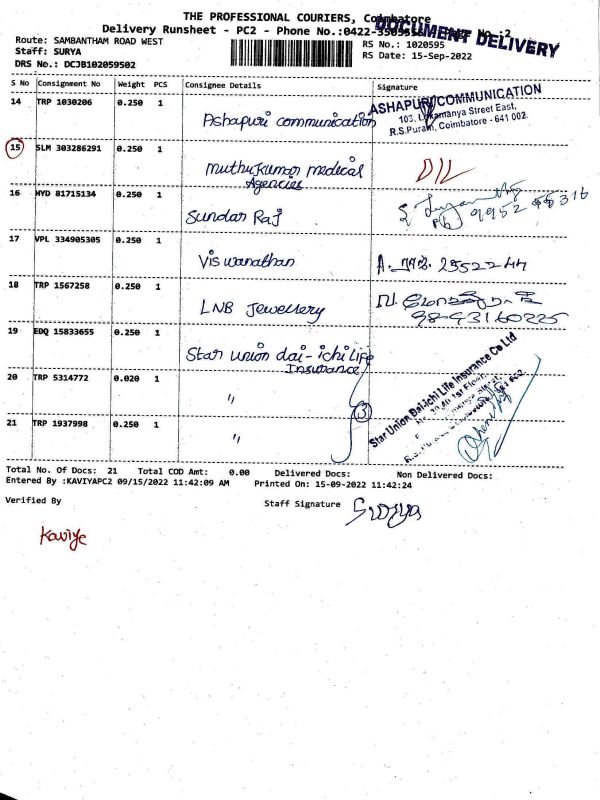 THE PROFESSIONAL COURIERS, Coimbatore
Delivery Runsheet - PC2 - Phone No.:0422- No.:2
DOCUMENT DELIVERY
Route: SAMBANTHAM ROAD WEST
RS No.: 1020595
Staff: SURYA
RS Date: 15-Sep-2022
DRS No.: DCJB102059502
S No Consignment No Weight PCS Consignee Details Signature
14 TRP 1030206 0.250 1 Ashapuri communication
ASHAPURI COMMUNICATION
103, Lokamanya Street East,
R.S.Puram, Coimbatore - 641 002.
15 SLM 303286291 0.250 1 Muthukumar medical
Agencies
16 HYD 81715134 0.250 1 Sundar Raj
17 VPL 334905305 0.250 1 Viswanathan
18 TRP 1567258 0.250 1 LNB Jewellery
9843160225
19 EDQ 15833655 0.250 1 Star union dai-ichi life
Insurance
Star Union Dai-ichi Life Insurance Co Ltd
20 TRP 5314772 0.020 1 "
3
21 TRP 1937998 0.250 1 "
Total No. Of Docs: 21 Total COD Amt: 0.00 Delivered Docs: Non Delivered Docs:
Entered By :KAVIYAPC2 09/15/2022 11:42:09 AM Printed On: 15-09-2022 11:42:24
Verified By Staff Signature Surya
Kaviye